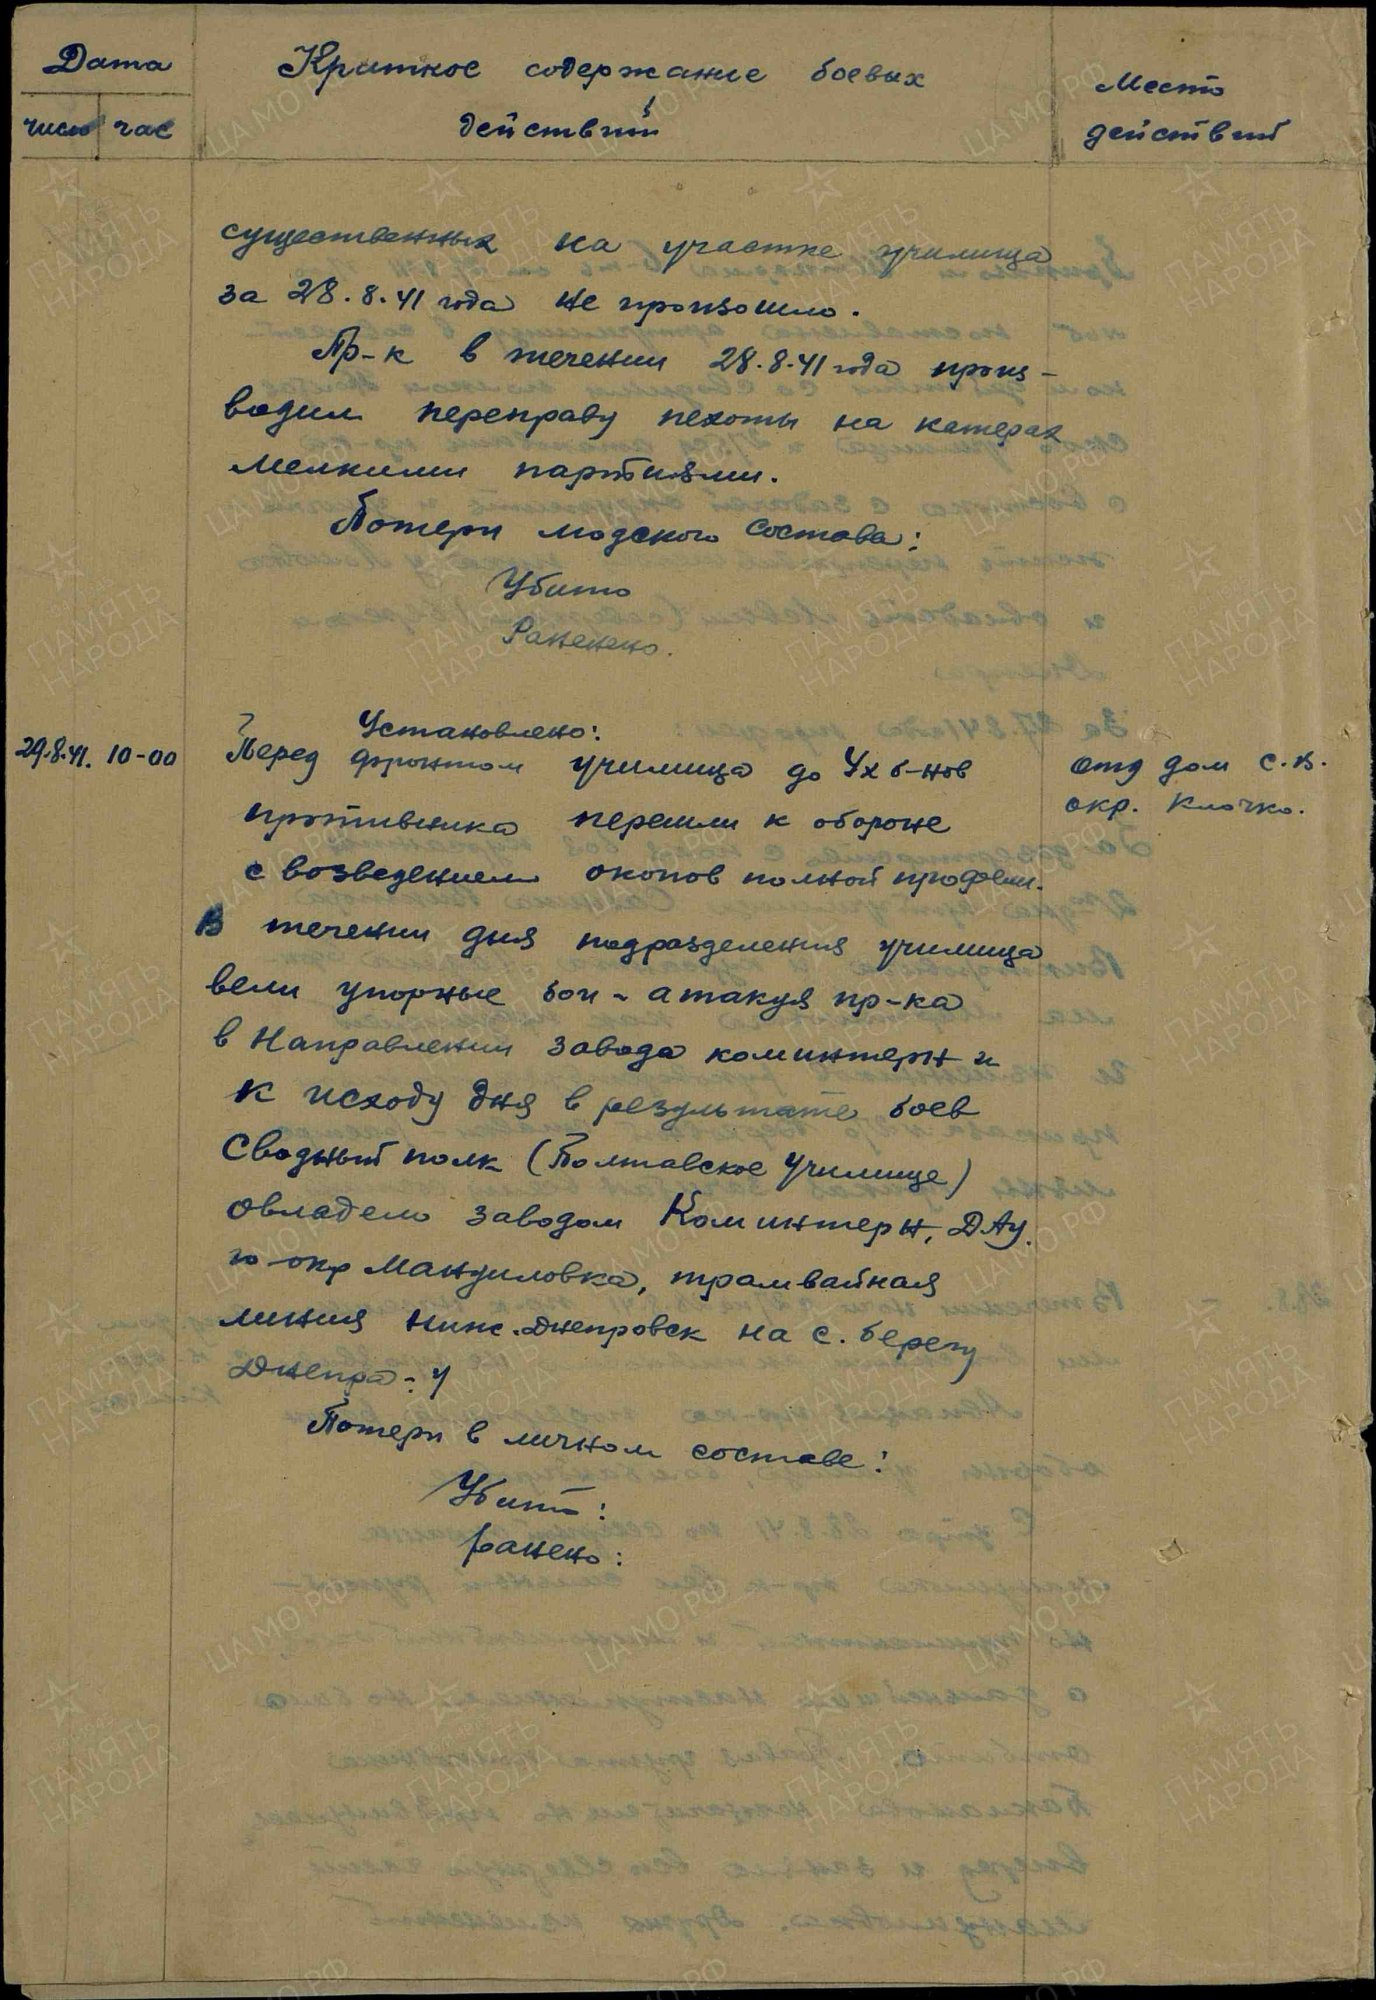 Дата
Краткое содержание боевых
действий
Место
действий
число час
существенных на участке училища
за 28.8.41 года не произошло.
Пр-к в течении 28.8.41 года произ-
водил переправу пехоты на катерах
мелкими партиями.
Потери людского состава:
Убито
Раненено.
Установлено:
29.8.41. 10-00
Перед фронтом училища до 4х б-нов
противника перешли к обороне
с возведением окопов полной профели.
отд дом С.В.
окр. Клочко.
В течении дня подразделения училища
вели упорные бои - атакуя пр-ка
в направлении завода коминтерн и
к исходу дня в результате боев
Сводный полк (Полтавское Училище)
овладело заводом Коминтерн, ДАУ.
ю-окр Мануиловка, трамвайная
линия Ниж.Днепровск на с. берегу
Днепра
Потери в личном составе:
Убито:
Ранено: